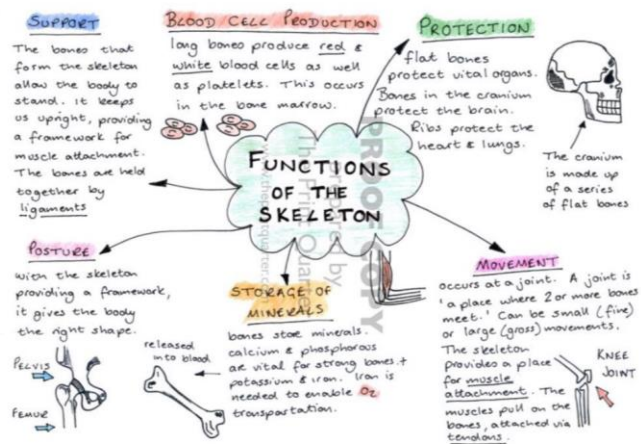 SUPPORT
The bones that
form the skeleton
allow the body to
stand. It keeps
us upright, providing
a framework for
muscle attachment.
The bones are held
together by
ligaments
BLOOD CELL PRODUCTION
long bones produce red &
white blood cells as well
as platelets. This occurs
in the bone marrow.
PROTECTION
flat bones
protect vital organs.
Bones in the cranium
protect the brain.
Ribs protect the
heart & lungs.
The cranium
is made up
of a series
of flat bones
FUNCTIONS
OF THE
SKELETON
PROOF COPY
POSTURE
with the skeleton
providing a framework,
it gives the body
the right shape.
PELVIS
FEMUR
STORAGE OF
MINERALS
bones store minerals.
calcium & phosphorous
are vital for strong bones +
potassium & iron. Iron is
needed to enable O2
transportation.
released
into blood
MOVEMENT
occurs at a joint. A joint is
'a place where 2 or more bones
meet.' Can be small (fine)
or large (gross) movements.
The skeleton
provides a place
for muscle
attachment. The
muscles pull on the
bones, attached via
tendons.
KNEE
JOINT